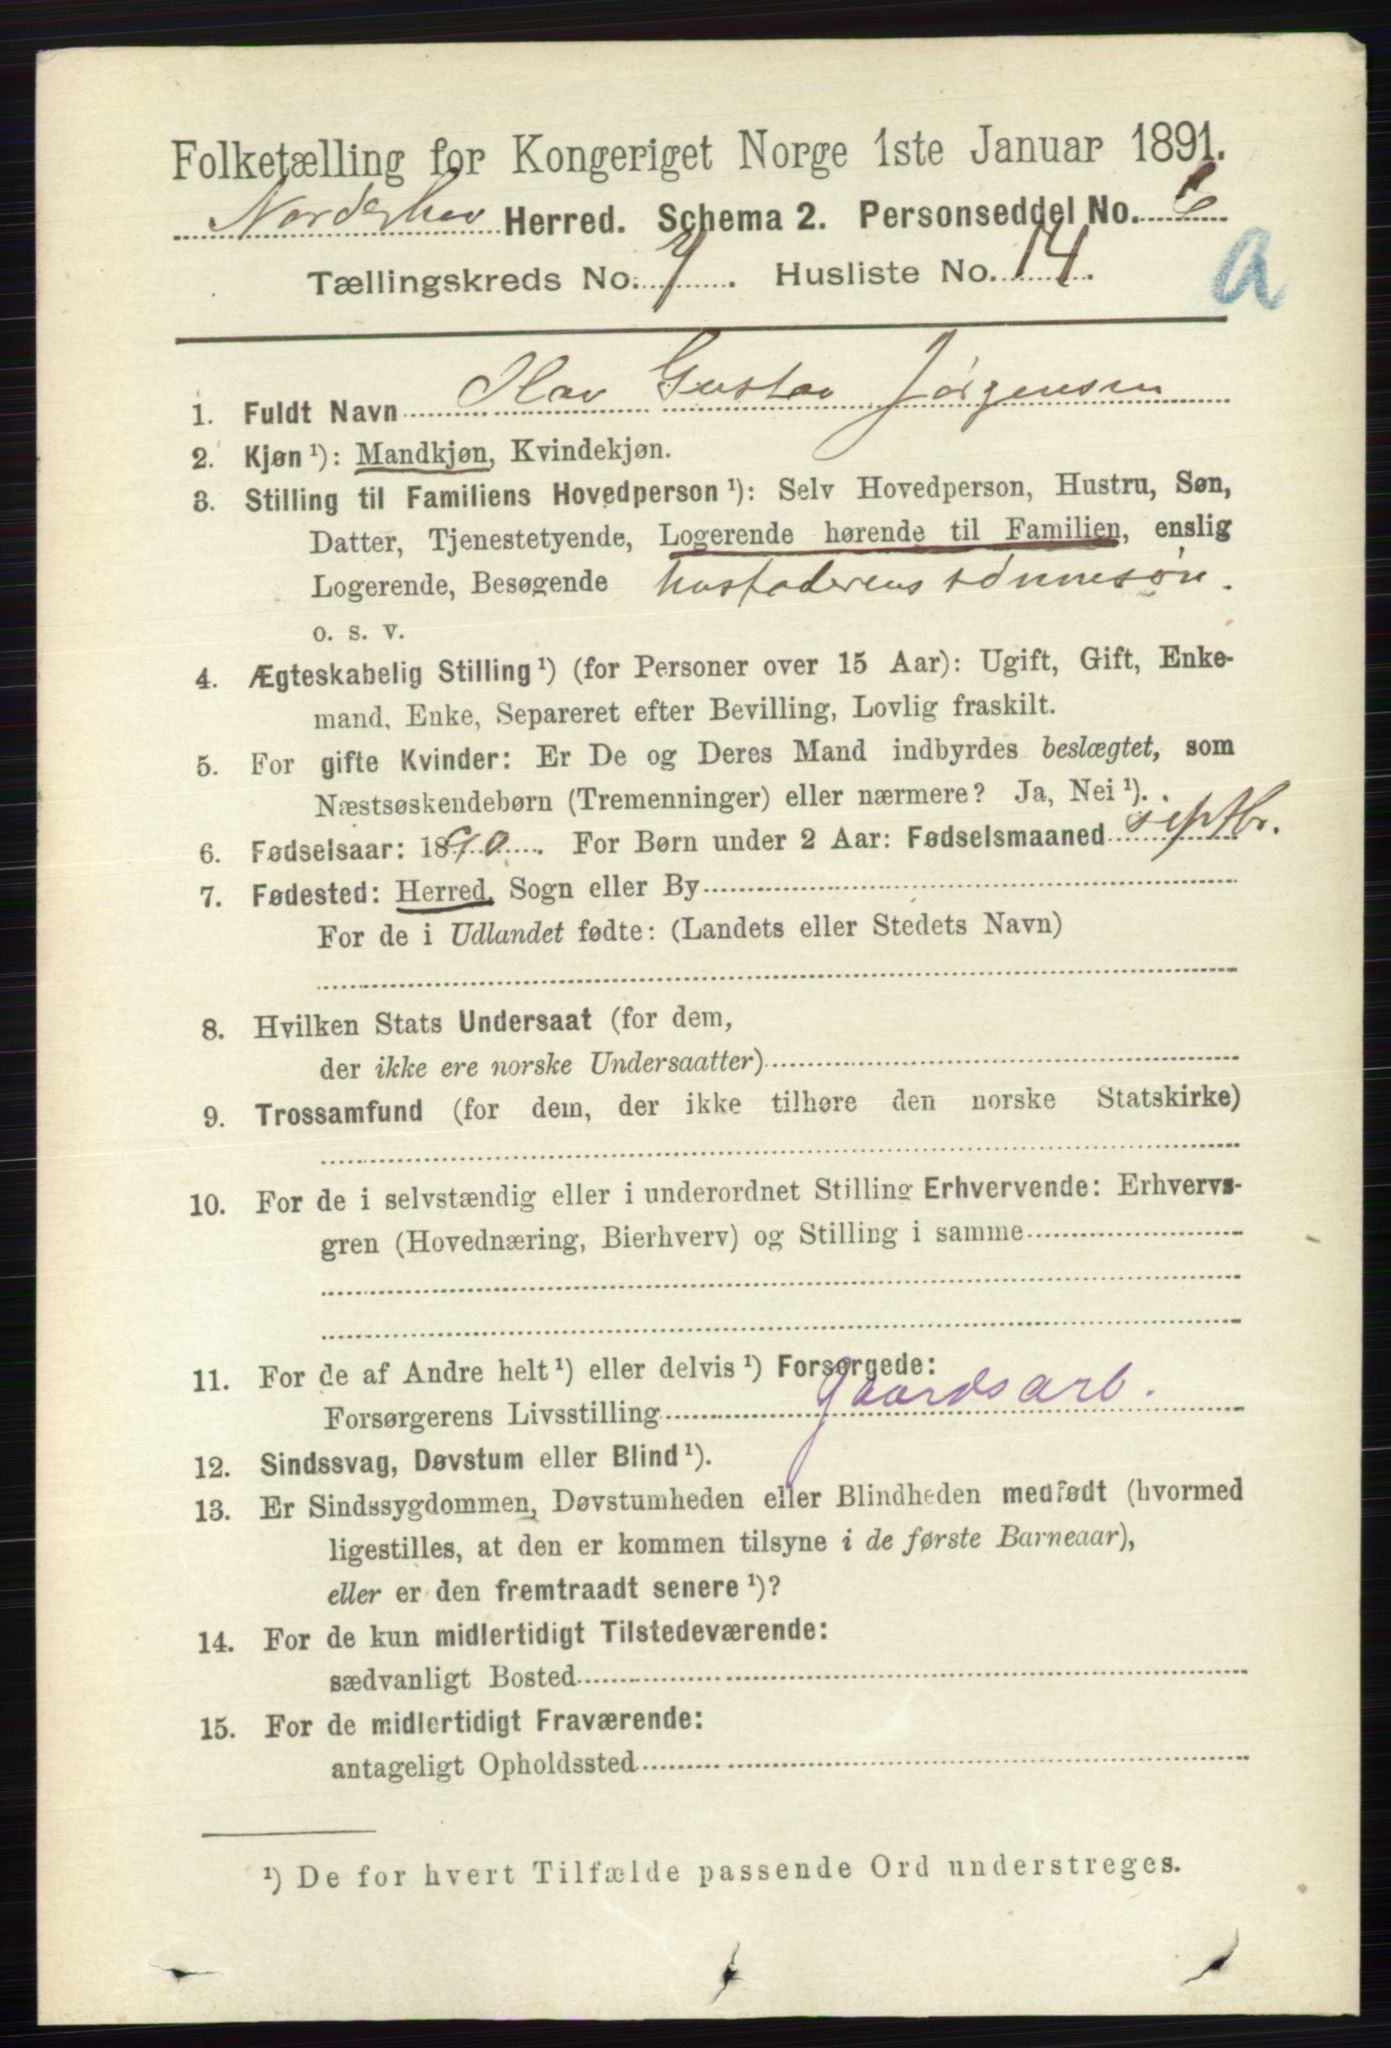 Folketælling for Kongeriget Norge 1ste Januar 1891.
Norderhov Herred. Schema 2. Personseddel No. 6
Tællingskreds No. 7. Husliste No. 14.
a
1. Fuldt Navn Olav Gustav Jørgensen
2. Kjøn ¹): Mandkjøn, Kvindekjøn.
3. Stilling til Familiens Hovedperson ¹): Selv Hovedperson, Hustru, Søn,
Datter, Tjenestetyende, Logerende hørende til Familien, enslig
Logerende, Besøgende husfaderens sønnesøn.
o. s. v.
4. Ægteskabelig Stilling ¹) (for Personer over 15 Aar): Ugift, Gift, Enke-
mand, Enke, Separeret efter Bevilling, Lovlig fraskilt.
5. For gifte Kvinder: Er De og Deres Mand indbyrdes beslægtet, som
Næstsøskendebørn (Tremenninger) eller nærmere? Ja, Nei ¹).
6. Fødselsaar: 1890. For Børn under 2 Aar: Fødselsmaaned septbr.
7. Fødested: Herred, Sogn eller By
For de i Udlandet fødte: (Landets eller Stedets Navn)
8. Hvilken Stats Undersaat (for dem,
der ikke ere norske Undersaatter)
9. Trossamfund (for dem, der ikke tilhøre den norske Statskirke)
10. For de i selvstændig eller i underordnet Stilling Erhvervende: Erhvervs-
gren (Hovednæring, Bierhverv) og Stilling i samme
11. For de af Andre helt ¹) eller delvis ¹) Forsørgede:
Forsørgerens Livsstilling Gaardsarb.
12. Sindssvag, Døvstum eller Blind ¹).
13. Er Sindssygdommen, Døvstumheden eller Blindheden medfødt (hvormed
ligestilles, at den er kommen tilsyne i de første Barneaar),
eller er den fremtraadt senere ¹)?
14. For de kun midlertidigt Tilstedeværende:
sædvanligt Bosted
15. For de midlertidigt Fraværende:
antageligt Opholdssted
¹) De for hvert Tilfælde passende Ord understreges.